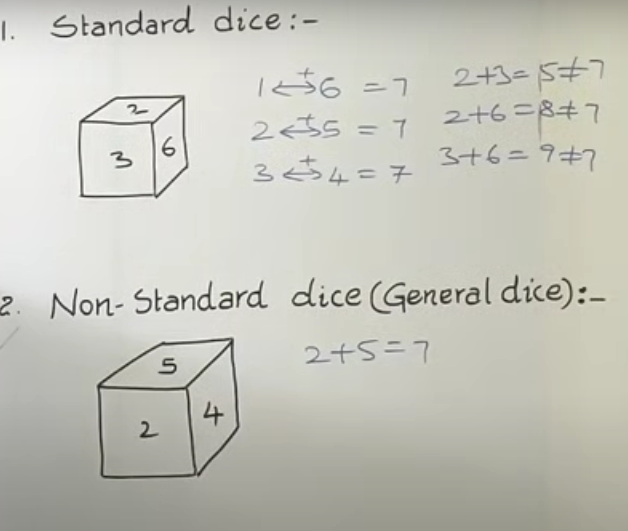 1. Standard dice :-
1 ↔+ 6 = 7
2 ↔+ 5 = 7
3 ↔+ 4 = 7
2+3= 5≠7
2+6=8≠7
3+6= 9≠7
2
3
6
2. Non-Standard dice (General dice):-
5
2
4
2+5=7